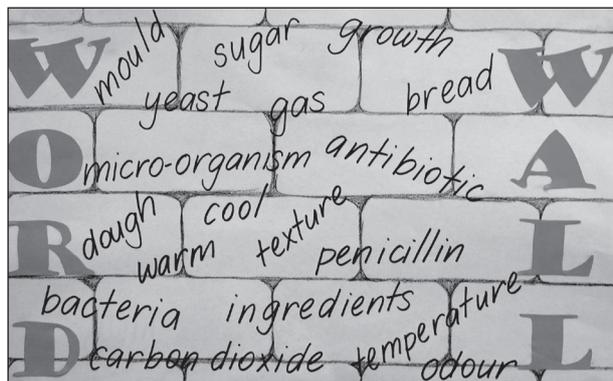 WORD
WALL
mould sugar growth
yeast gas bread
micro-organism antibiotic
dough cool texture
warm penicillin
bacteria ingredients temperature
carbon dioxide odour